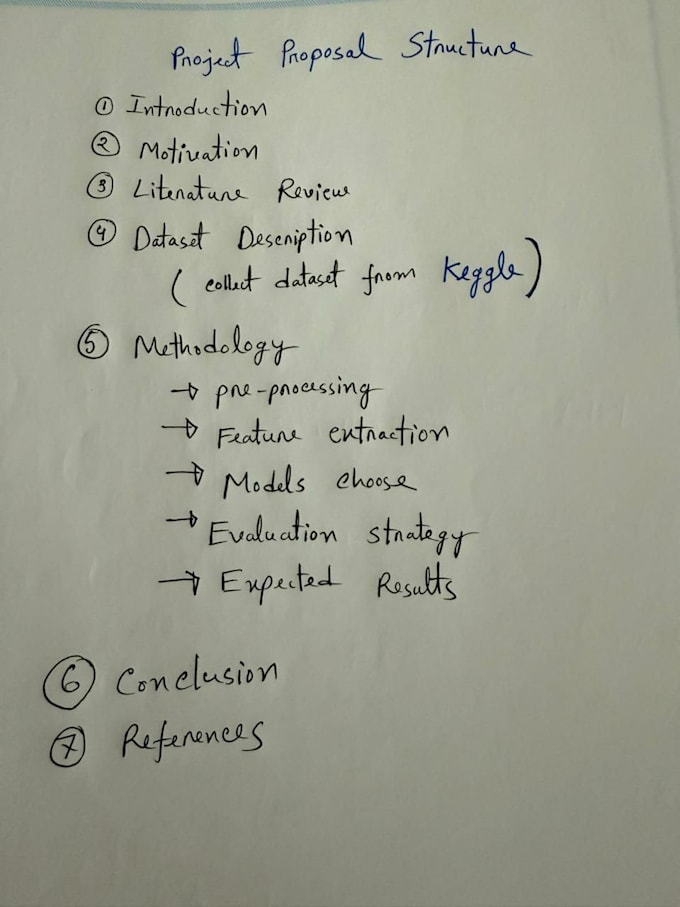 Project Proposal Structure
① Introduction
② Motivation
③ Literature Review
④ Dataset Description
( collect dataset from Keggle )
⑤ Methodology
→ pre-processing
→ Feature extraction
→ Models choose
→ Evaluation strategy
→ Expected Results
⑥ Conclusion
⑦ References